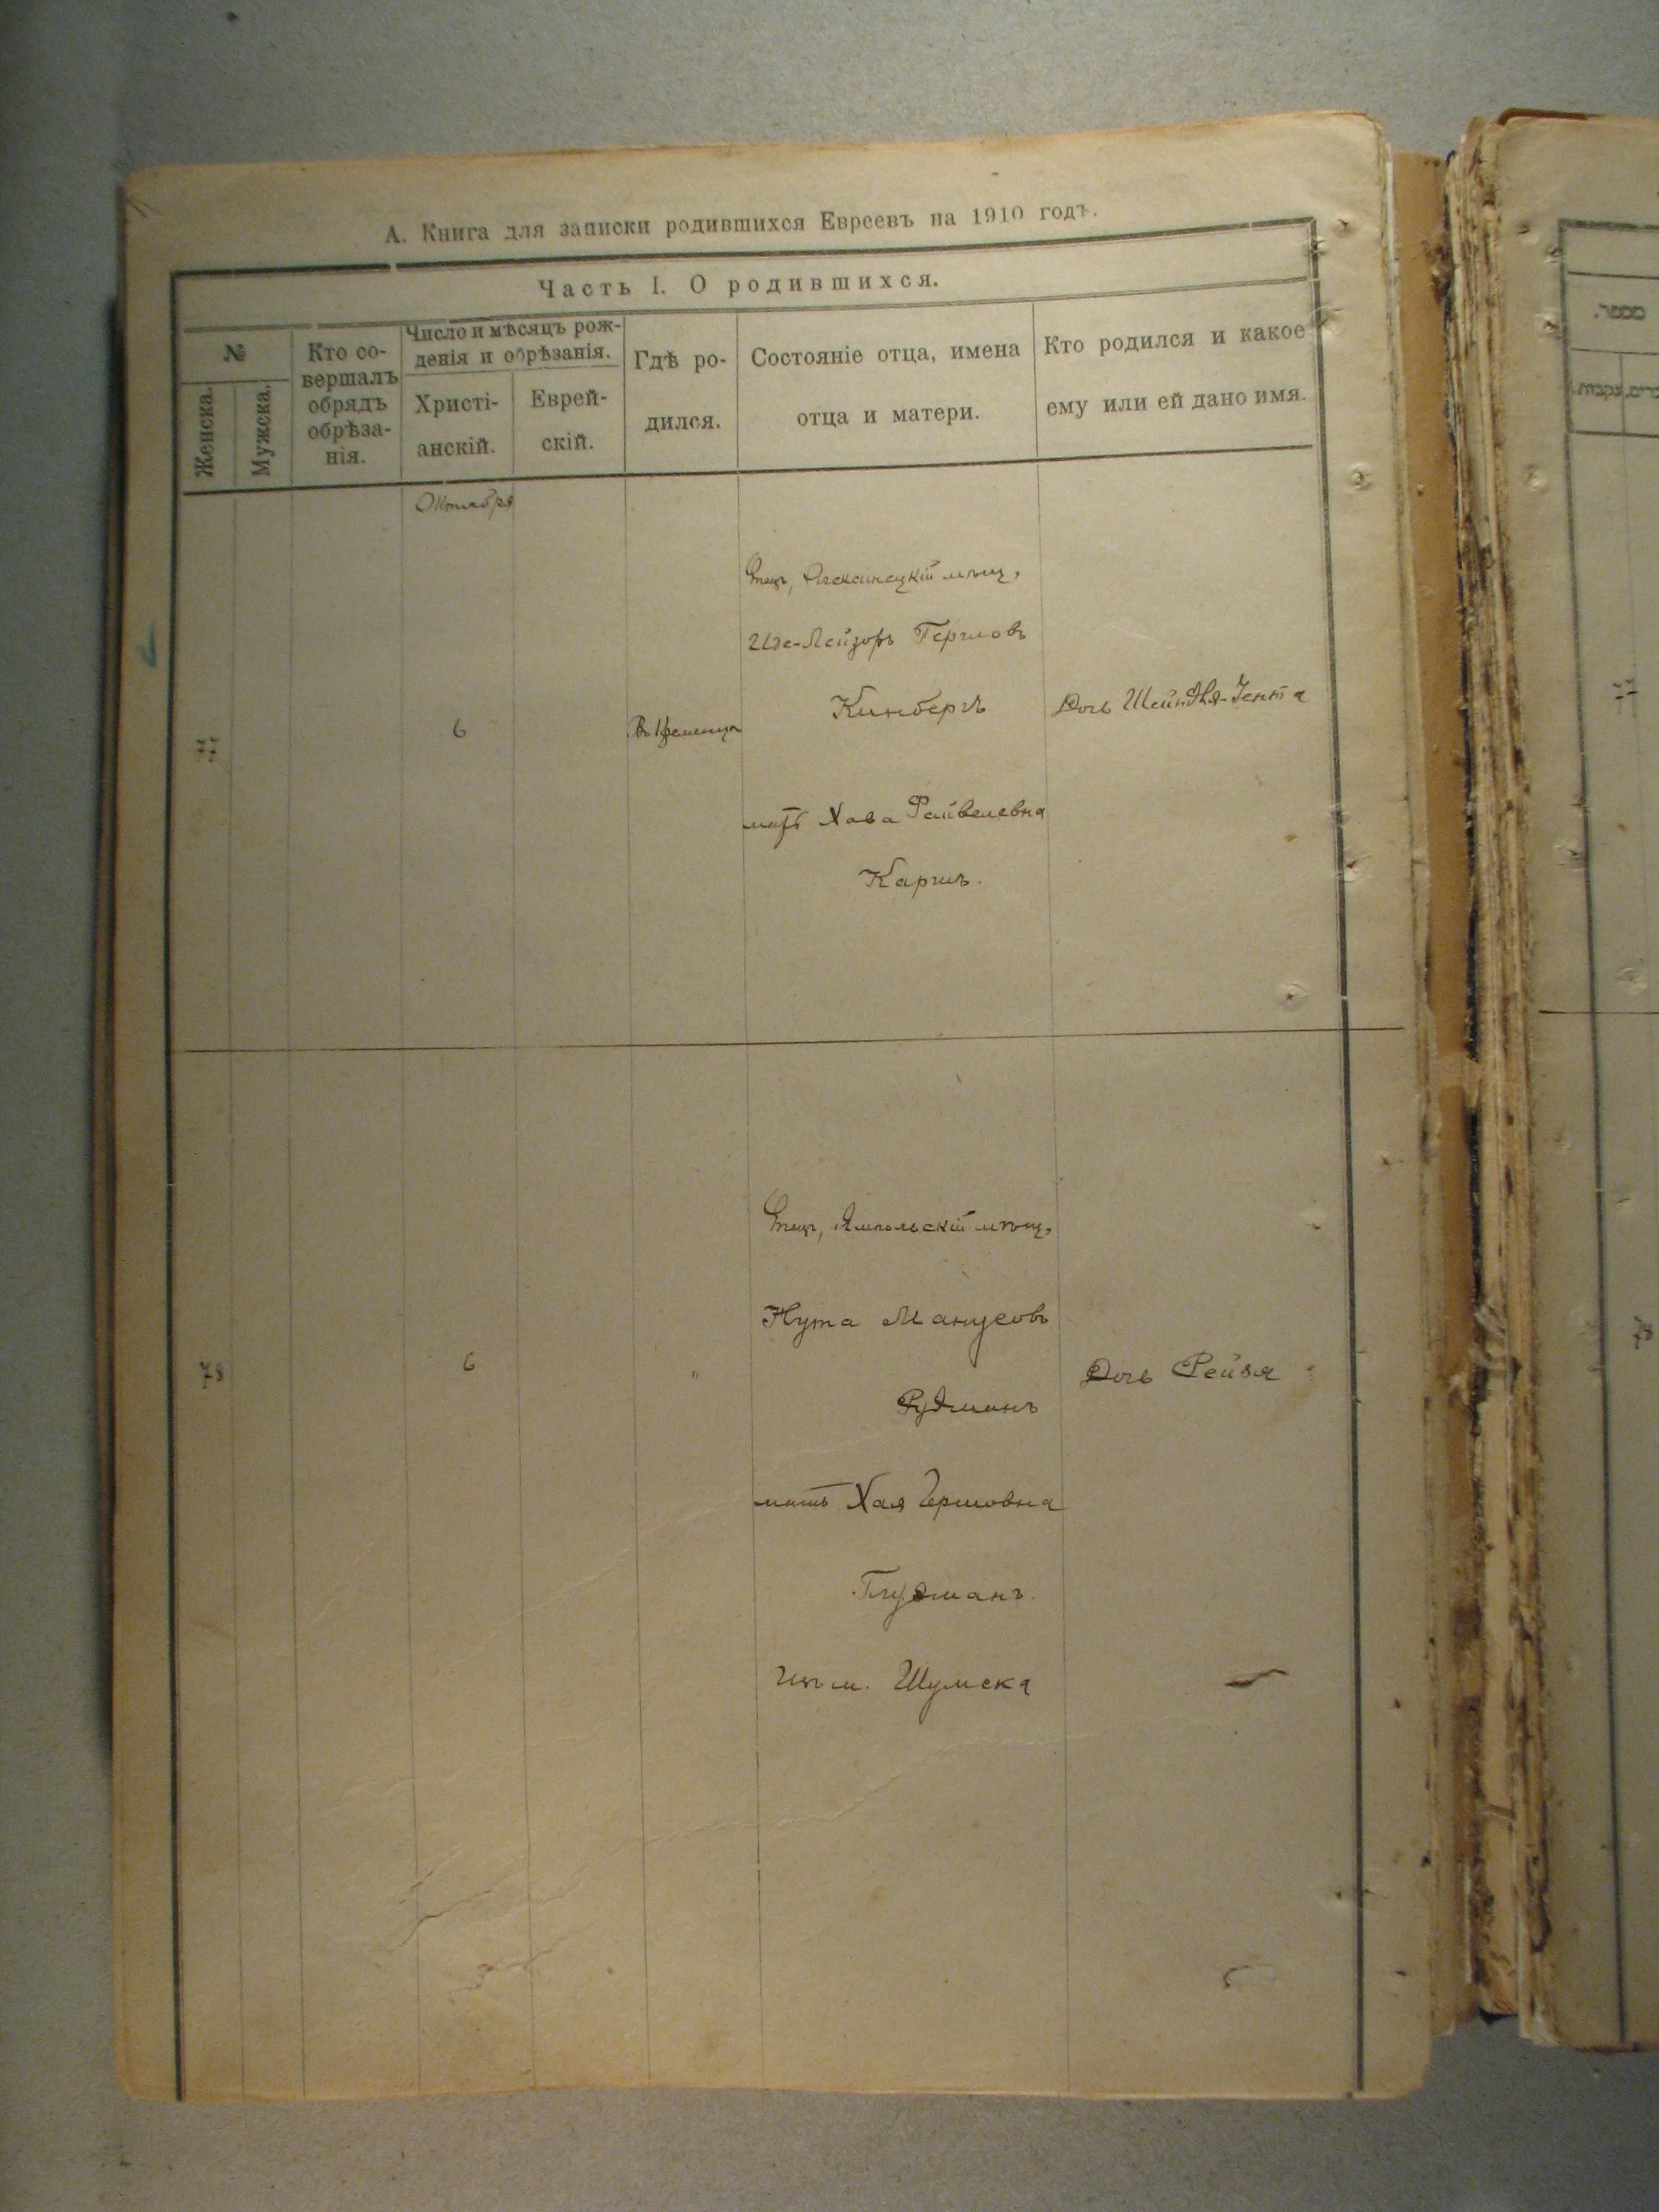 А. Книга для записки родившихся Евреевъ на 1910 годъ.
Часть I. О родившихся.
№
Женска.
Мужска.
Кто со-
вершалъ
обрядъ
обрѣза-
нія.
Число и мѣсяцъ рож-
денія и обрѣзанія.
Христі-
анскій.
Еврей-
скій.
Гдѣ ро-
дился.
Состояніе отца, имена
отца и матери.
Кто родился и какое
ему или ей дано имя.
Октября
77
6
Въ Кременцѣ
Отецъ, Олексинецкій мѣщ.
Иде-Лейзоръ Гершовъ
Кинбергъ
мать Хава Файвелевна
Каршъ.
Дочь Шейндля-Іента
78
6
"
Отецъ, Ямпольскій мѣщ.
Нута Манусовъ
Рудманъ
мать Хая Гершовна
Глузманъ.
изъ м. Шумска
Дочь Рейзя
77
78